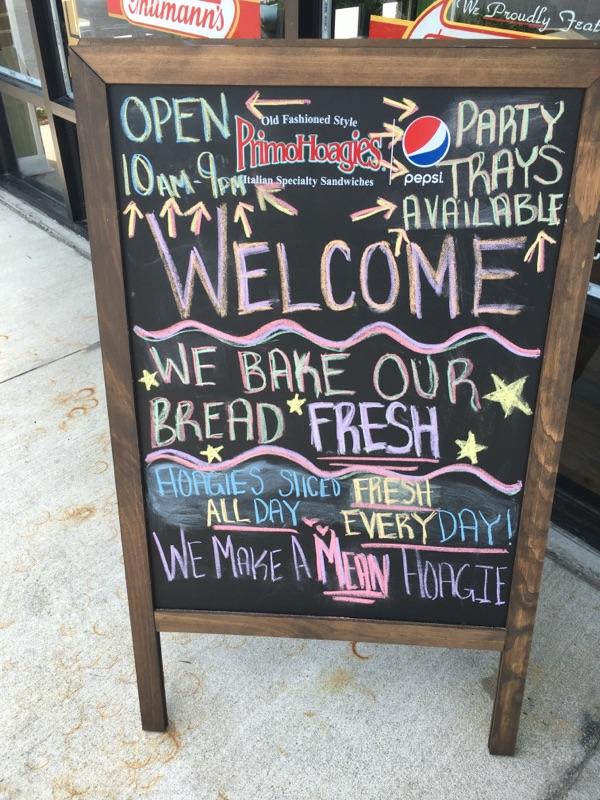 Thumann's
We Proudly Feat
OPEN
10AM-9PM
Old Fashioned Style
PrimoHoagies
Italian Specialty Sandwiches
pepsi
PARTY
TRAYS
AVAILABLE
WELCOME
WE BAKE OUR
BREAD FRESH
HOAGIES SLICED FRESH
ALL DAY EVERYDAY!
WE MAKE A MEAN HOAGIE